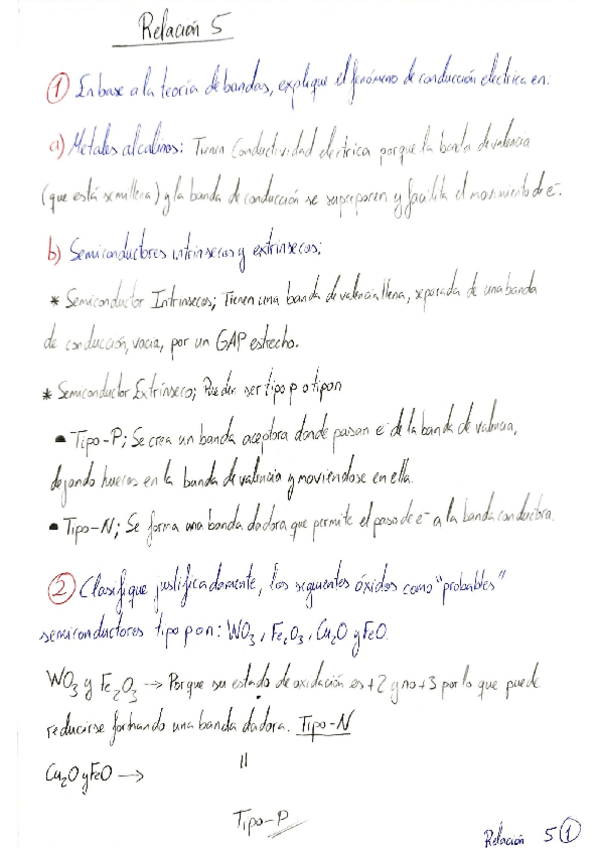 Relación 5
① En base a la teoría de bandas, explique el fenómeno de conducción eléctrica en:
a) Metales alcalinos: Tienen Conductividad eléctrica porque la banda de valencia
(que está semillena) y la banda de conducción se superponen y facilita el movimiento de e-.
b) Semiconductores intrínsecos y extrínsecos;
* Semiconductor Intrínsecos; Tienen una banda de valencia llena, separada de una banda
de conducción, vacía, por un GAP estrecho.
* Semiconductor Extrínseco; Pueden ser tipo p o tipo n
- Tipo-P; Se crea un banda aceptora donde pasan e- de la banda de valencia,
dejando huecos en la banda de valencia y moviéndose en ella.
- Tipo-N; Se forma una banda dadora que permite el paso de e- a la banda conductora.
② Clasifique justificadamente, los siguientes óxidos como "probables"
semiconductores tipo p o n: WO3, Fe2O3, Cu2O y FeO.
WO3 y Fe2O3 → Porque su estado de oxidación es +2 y no +3 por lo que puede
reducirse formando una banda dadora. Tipo-N
Cu2O y FeO → "
Tipo-P
Relación 5 ①